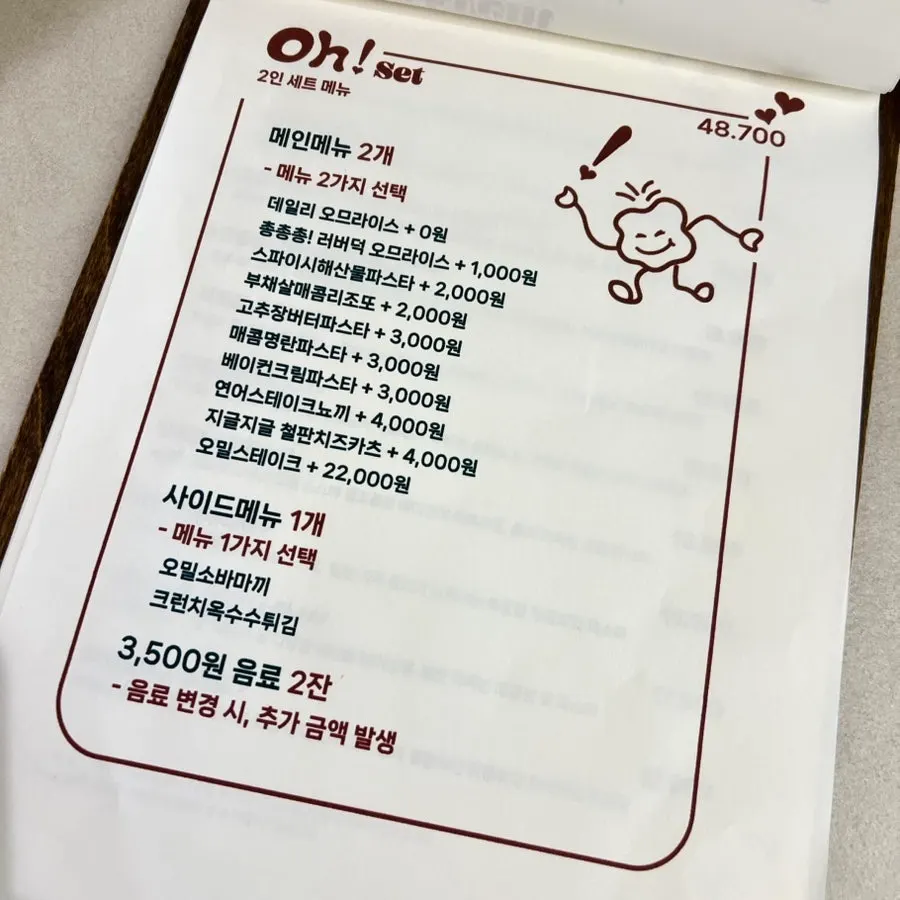 Oh! Set
2인 세트 메뉴
48.700
메인메뉴 2개
- 메뉴 2가지 선택
데일리 오므라이스 + 0원
총총총! 러버덕 오므라이스 + 1,000원
스파이시해산물파스타 + 2,000원
부채살매콤리조또 + 2,000원
고추장버터파스타 + 3,000원
매콤명란파스타 + 3,000원
베이컨크림파스타 + 3,000원
연어스테이크뇨끼 + 4,000원
지글지글 철판치즈카츠 + 4,000원
오밀스테이크 + 22,000원
사이드메뉴 1개
- 메뉴 1가지 선택
오밀소바마끼
크런치옥수수튀김
3,500원 음료 2잔
- 음료 변경 시, 추가 금액 발생